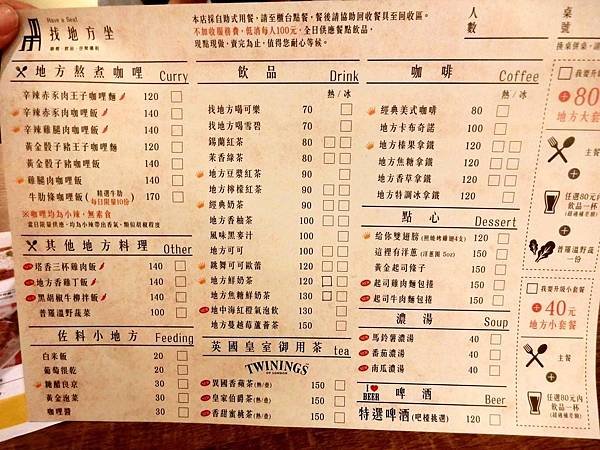 Have a Seat
找地方坐
本店採自助式用餐，請至櫃台點餐，餐後請協助回收餐具至回收區。
不加收服務費，低消每人100元，全日供應餐點飲品，
現點現做，賣完為止，值得您耐心等候。
人數
桌號
地方熬煮咖哩 Curry
辛辣赤豕肉王子咖哩麵 120
辛辣赤豕肉咖哩飯 140
辛辣雞腿肉咖哩飯 140
黃金骰子豬王子咖哩麵 120
黃金骰子豬咖哩飯 140
雞腿肉咖哩飯 140
牛肋條咖哩飯(精選牛肋 每日限量10份) 170
※咖哩均為小辣，無素食
其他地方料理 Other
塔香三杯雞肉飯 140
地方香雞丁飯 140
黑胡椒牛柳拌飯 150
普羅溫野蔬菜 100
佐料小地方 Feeding
白米飯 20
葡萄很乾 20
糖醋良京 30
黃金泡菜 30
咖哩醬 30
飲品 Drink
熱/冰
找地方喝可樂 70
找地方喝雪碧 70
錫蘭紅茶 80
茉香綠茶 80
地方豆漿紅茶 90
地方檸檬紅茶 90
經典奶茶 90
地方香柚茶 90
風味黑麥汁 100
地方可可 100
跳舞可可歐蕾 120
地方鮮奶茶 120
地方焦糖鮮奶茶 130
地中海紅橙氣泡飲 130
地方蔓越莓蘆薈茶 150
英國皇室御用茶 tea
TWININGS
OF LONDON
異國香蘋茶(熱/壺) 150
皇家伯爵茶(熱/壺) 150
香甜蜜桃茶(熱/壺) 150
咖啡 Coffee
熱/冰
經典美式咖啡 80
地方卡布奇諾 100
地方榛果拿鐵 120
地方焦糖拿鐵 120
地方香草拿鐵 120
地方特調冰拿鐵 120
點心 Dessert
給你雙翅膀(照燒烤雞翅4支) 120
這裡有洋蔥(洋蔥圈 5oz) 150
黃金起司條子 150
起司雞肉麵包捲 150
起司牛肉麵包捲 150
濃湯 Soup
馬鈴薯濃湯 40
番茄濃湯 40
南瓜濃湯 40
I BEER 啤酒 Beer
特選啤酒(吧檯挑選) 120
我要升級大套餐
+80
地方大套
主餐
任選80元內
飲品一杯
(超過補差額)
普羅溫野蔬
一份
我要升級小套餐
+40元
地方小套餐
主餐
任選80元內
飲品一杯
(超過補差額)